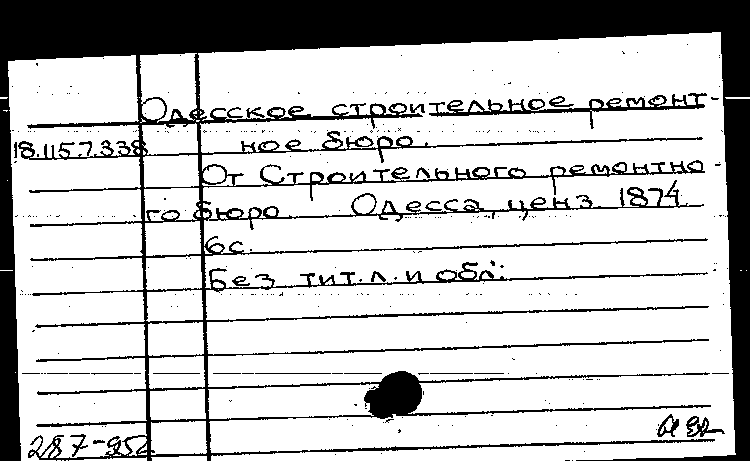 Одесское строительное ремонт-
18.115.7.338 ное бюро.
От Строительного ремонтно-
го бюро. Одесса, ценз 1874.
6с.
Без тит.л. и обл.
287-952